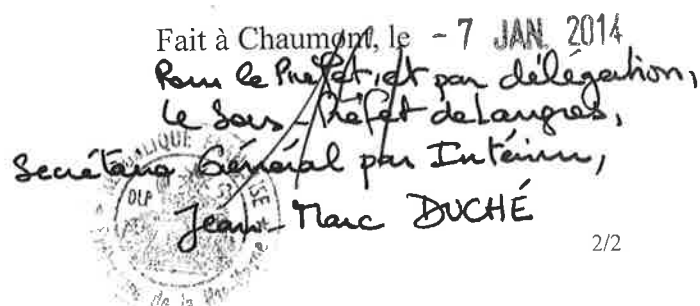 Fait à Chaumont, le - 7 JAN. 2014
Pour le Préfet, et par délégation,
Le Sous-Préfet de Langres,
Secrétaire Général par Intérim,
Jean-Marc DUCHÉ
RÉPUBLIQUE FRANÇAISE
DLP
53
de la
2/2